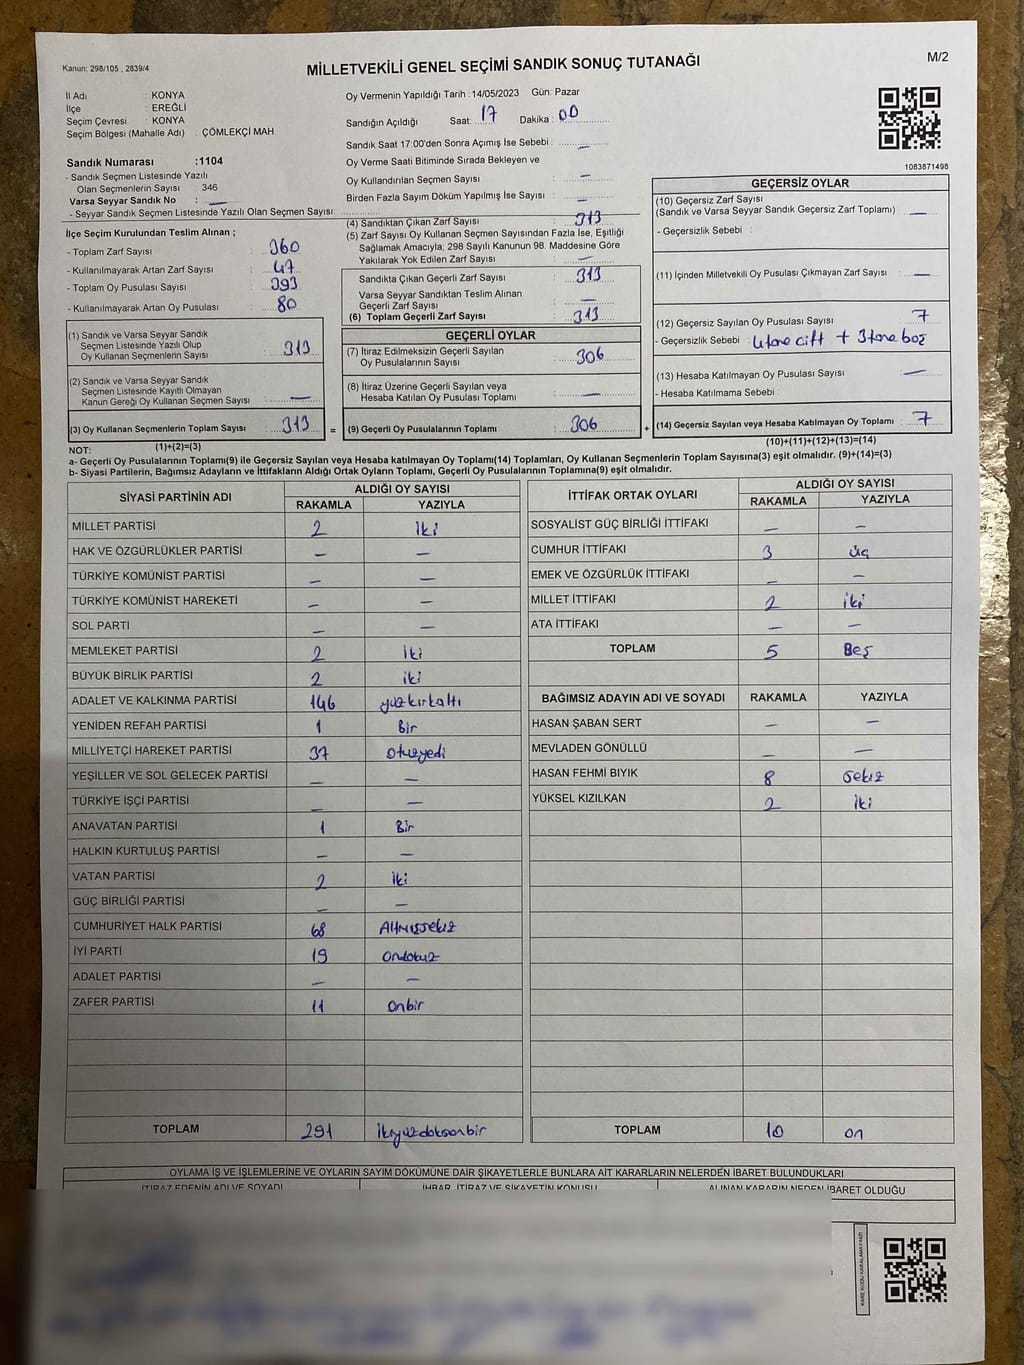 Kanun: 298/105 , 2839/4
MİLLETVEKİLİ GENEL SEÇİMİ SANDIK SONUÇ TUTANAĞI
M/2
İl Adı : KONYA
İlçe : EREĞLİ
Seçim Çevresi : KONYA
Seçim Bölgesi (Mahalle Adı) : ÇÖMLEKÇİ MAH.
Sandık Numarası :1104
- Sandık Seçmen Listesinde Yazılı
Olan Seçmenlerin Sayısı : 346
Varsa Seyyar Sandık No : —
- Seyyar Sandık Seçmen Listesinde Yazılı Olan Seçmen Sayısı:
Oy Vermenin Yapıldığı Tarih :14/05/2023 Gün: Pazar
Sandığın Açıldığı Saat: 17 Dakika : 00
Sandık Saat 17:00'den Sonra Açımış İse Sebebi : —
Oy Verme Saati Bitiminde Sırada Bekleyen ve
Oy Kullandırılan Seçmen Sayısı : —
Birden Fazla Sayım Döküm Yapılmış İse Sayısı : —
1083871498
İlçe Seçim Kurulundan Teslim Alınan ;
- Toplam Zarf Sayısı : 360
- Kullanılmayarak Artan Zarf Sayısı : 47
- Toplam Oy Pusulası Sayısı : 393
- Kullanılmayarak Artan Oy Pusulası : 80
(1) Sandık ve Varsa Seyyar Sandık
Seçmen Listesinde Yazılı Olup
Oy Kullanan Seçmenlerin Sayısı : 313
(2) Sandık ve Varsa Seyyar Sandık
Seçmen Listesinde Kayıtlı Olmayan
Kanun Gereği Oy Kullanan Seçmen Sayısı : —
(3) Oy Kullanan Seçmenlerin Toplam Sayısı : 313 =
(4) Sandıktan Çıkan Zarf Sayısı : 313
(5) Zarf Sayısı Oy Kullanan Seçmen Sayısından Fazla İse, Eşitliği
Sağlamak Amacıyla; 298 Sayılı Kanunun 98. Maddesine Göre
Yakılarak Yok Edilen Zarf Sayısı : —
Sandıkta Çıkan Geçerli Zarf Sayısı : 313
Varsa Seyyar Sandıktan Teslim Alınan
Geçerli Zarf Sayısı : —
(6) Toplam Geçerli Zarf Sayısı : 313
GEÇERLİ OYLAR
(7) İtiraz Edilmeksizin Geçerli Sayılan
Oy Pusulalarının Sayısı : 306
(8) İtiraz Üzerine Geçerli Sayılan veya
Hesaba Katılan Oy Pusulası Toplamı : —
(9) Geçerli Oy Pusulalarının Toplamı : 306 +
GEÇERSİZ OYLAR
(10) Geçersiz Zarf Sayısı
(Sandık ve Varsa Seyyar Sandık Geçersiz Zarf Toplamı) : —
- Geçersizlik Sebebi :
(11) İçinden Milletvekili Oy Pusulası Çıkmayan Zarf Sayısı : —
(12) Geçersiz Sayılan Oy Pusulası Sayısı : 7
- Geçersizlik Sebebi : 4 tane çift + 3 tane boş
(13) Hesaba Katılmayan Oy Pusulası Sayısı : —
- Hesaba Katılmama Sebebi :
(14) Geçersiz Sayılan veya Hesaba Katılmayan Oy Toplamı : 7
NOT: (1)+(2)=(3) (10)+(11)+(12)+(13)=(14)
a- Geçerli Oy Pusulalarının Toplamı(9) ile Geçersiz veya Hesaba katılmayan Oy Toplamı(14) Toplamları, Oy Kullanan Seçmenlerin Toplam Sayısına(3) eşit olmalıdır. (9)+(14)=(3)
b- Siyasi Partilerin, Bağımsız Adayların ve İttifakların Aldığı Ortak Oyların Toplamı, Geçerli Oy Pusulalarının Toplamına(9) eşit olmalıdır.
SİYASİ PARTİNİN ADI ALDIĞI OY SAYISI
RAKAMLA YAZIYLA
MİLLET PARTİSİ 2 iki
HAK VE ÖZGÜRLÜKLER PARTİSİ — —
TÜRKİYE KOMÜNİST PARTİSİ — —
TÜRKİYE KOMÜNİST HAREKETİ — —
SOL PARTİ — —
MEMLEKET PARTİSİ 2 iki
BÜYÜK BİRLİK PARTİSİ 2 iki
ADALET VE KALKINMA PARTİSİ 146 yüzkırkaltı
YENİDEN REFAH PARTİSİ 1 Bir
MİLLİYETÇİ HAREKET PARTİSİ 37 otuzyedi
YEŞİLLER VE SOL GELECEK PARTİSİ — —
TÜRKİYE İŞÇİ PARTİSİ — —
ANAVATAN PARTİSİ 1 Bir
HALKIN KURTULUŞ PARTİSİ — —
VATAN PARTİSİ 2 iki
GÜÇ BİRLİĞİ PARTİSİ — —
CUMHURİYET HALK PARTİSİ 68 Altmışsekiz
İYİ PARTİ 19 ondokuz
ADALET PARTİSİ — —
ZAFER PARTİSİ 11 onbir
TOPLAM 291 ikiyüzdoksanbir
İTTİFAK ORTAK OYLARI ALDIĞI OY SAYISI
RAKAMLA YAZIYLA
SOSYALİST GÜÇ BİRLİĞİ İTTİFAKI — —
CUMHUR İTTİFAKI 3 üç
EMEK VE ÖZGÜRLÜK İTTİFAKI — —
MİLLET İTTİFAKI 2 iki
ATA İTTİFAKI — —
TOPLAM 5 Beş
BAĞIMSIZ ADAYIN ADI VE SOYADI RAKAMLA YAZIYLA
HASAN ŞABAN SERT — —
MEVLADEN GÖNÜLLÜ — —
HASAN FEHMİ BIYIK 8 sekiz
YÜKSEL KIZILKAN 2 iki
TOPLAM 10 on
OYLAMA İŞ VE İŞLEMLERİNE VE OYLARIN SAYIM DÖKÜMÜNE DAİR ŞİKAYETLERLE BUNLARA AİT KARARLARIN NELERDEN İBARET BULUNDUKLARI
İTİRAZ EDENİN ADI VE SOYADI İHBAR, İTİRAZ VE ŞİKAYETİN KONUSU ALINAN KARARIN NEDEN İBARET OLDUĞU
KARE KODU KARALAMAYINIZ!